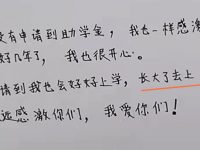 没有申请到助学金，我也一样感激
好几年了，我也很开心。
请到我也会好好上学，长大了去上
远感激你们，我爱你们！